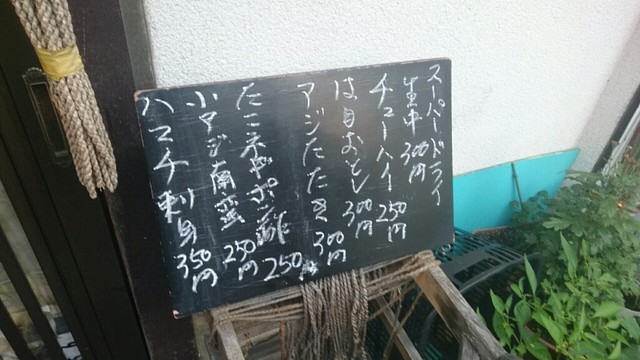 スーパードライ
生中 300円
チューハイ 250円
はもおとし 300円
アジたたき 300円
たこネギポン酢 250円
小アジ南蛮 250円
ハマチ刺身 350円